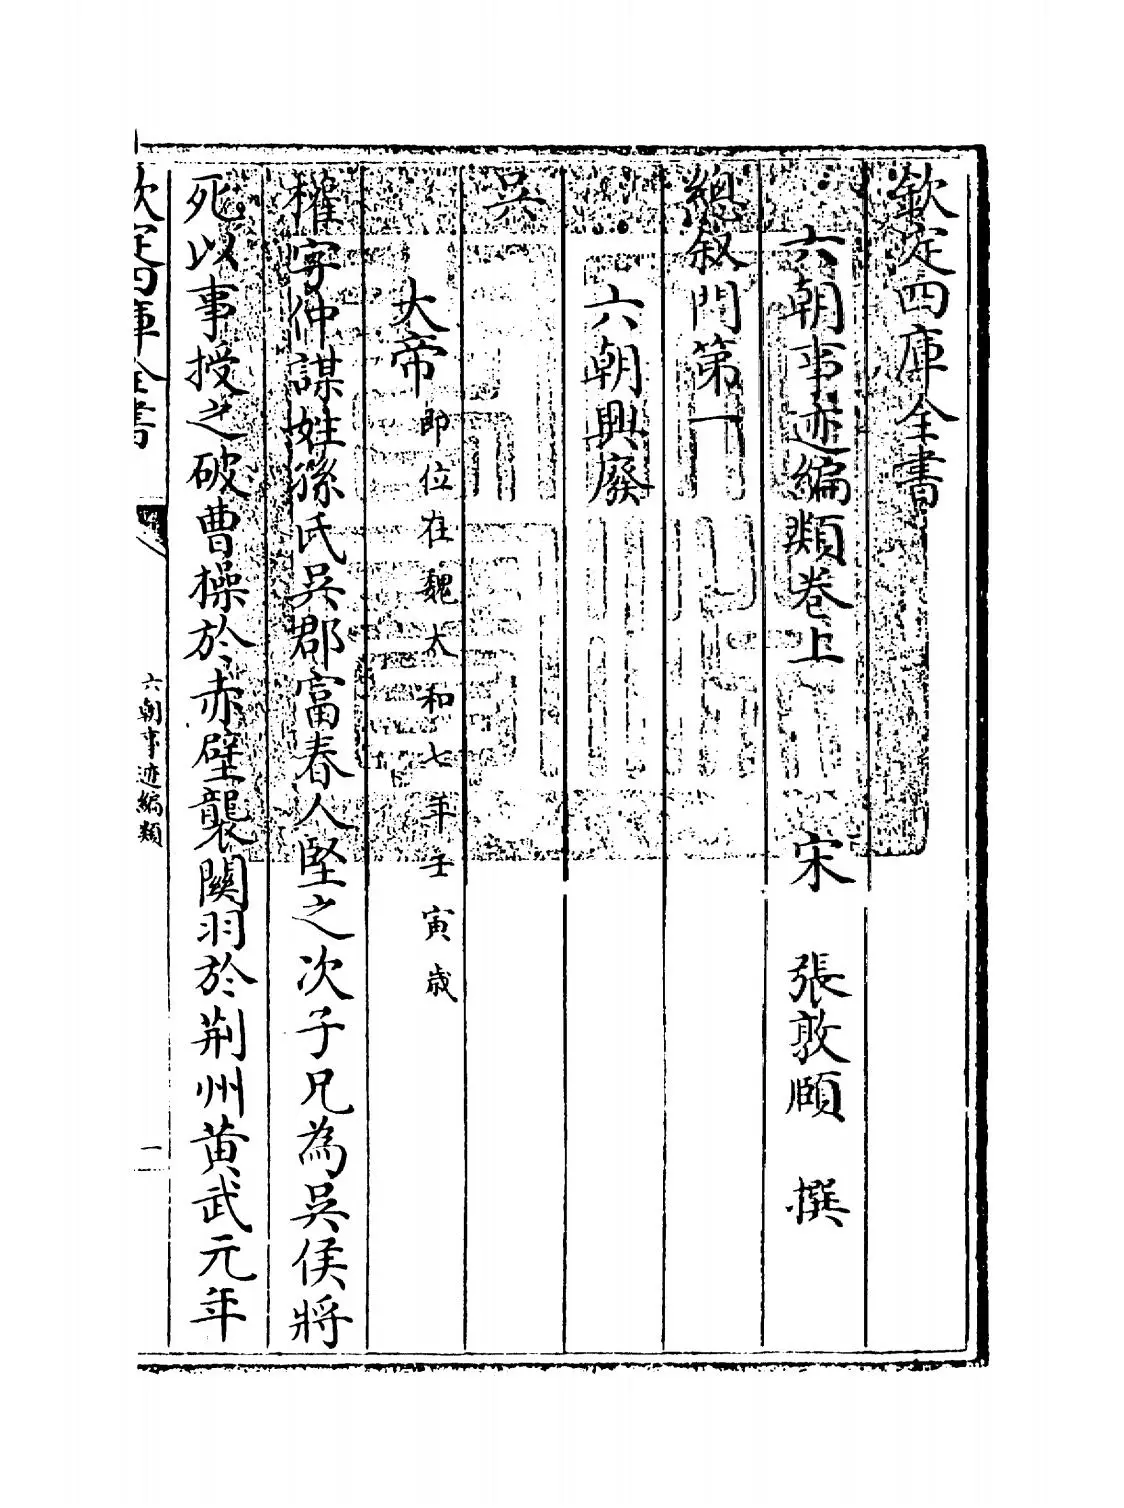 欽定四庫全書
六朝事迹編類卷上 宋 張敦頤 撰
總叙門第一
六朝興廢
吳
大帝 即位在魏太和七年壬寅歲
權字仲謀姓孫氏吳郡富春人堅之次子兄為吳侯將
死以事授之破曹操於赤壁襲關羽於荆州黄武元年
欽定四庫全書
六朝事迹編類
一